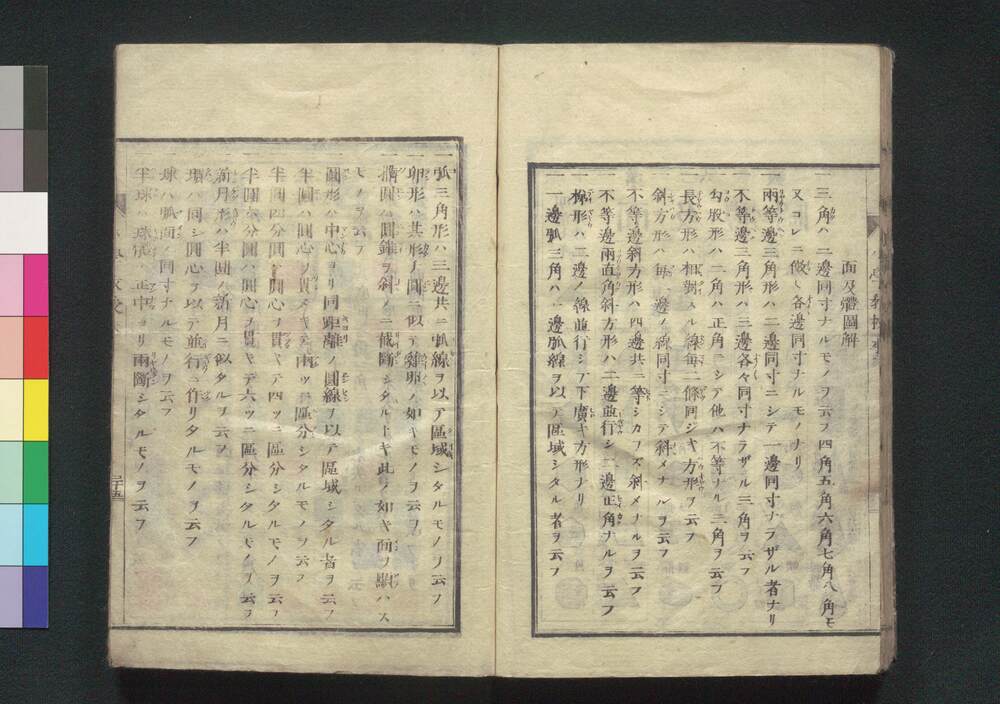 面及躰圖解
一 三角ハ 二邊同寸ナルモノヲ云フ四角五角六角七角八角モ
又コレニ倣シ各邊同寸ナルモノナリ
一 兩等邊三角形ハ二邊同寸ニシテ一邊同寸ナラザル者ナリ
一 不等邊三角形ハ三邊各々同寸ナラザル三角ヲ云フ
一 勾股形ハ一角ハ正角ニシテ他ハ不等ナル三角ヲ云フ
一 長方形ハ相對スル線每ニ條同ジキ方形ヲ云フ
一 斜方形ハ每邊ノ線同寸ニシテ斜メナルヲ云フ
一 不等邊斜方形ハ四邊共ニ等シカラズ斜メナルヲ云フ
一 不等邊兩直角斜方形ハ二邊並行シ二邊正角ナルヲ云フ
一 梯形ハ二邊ノ線並行シ下廣キ方形ナリ
一 一邊弧三角ハ一邊弧線ヲ以テ區域シタル者ヲ云フ
一 弧三角形ハ三邊共ニ弧線ヲ以テ區域シタルモノヲ云フ
一 卵形ハ其形 圓ニ似テ雞卵ノ如キモノヲ云フ
一 橢圓ハ圓錐ヲ斜メニ截斷シタルトキ此ノ如キ面ヲ顯ハス
モノヲ云フ
一 圓形ハ中心ヨリ同距離ノ圓線ヲ以テ區域シタル者ヲ云フ
一 半圓ハ圓心ヲ貫キテ兩ツニ區分シタルモノヲ云フ
一 半圓四分圓ハ圓心ヲ貫キテ四ツニ區分シタルモノヲ云フ
一 半圓六分圓ハ圓心ヲ貫キテ六ツニ區分シタルモノヲ云フ
一 新月形ハ半圓ノ新月ニ似タルヲ云フ
一 環ハ同シ圓心ヲ以テ並行ニ作リタルモノヲ云フ
一 球ハ弧面ノ同寸ナルモノヲ云フ
一 半球ハ球形ノ正中ヨリ兩斷シタルモノヲ云フ